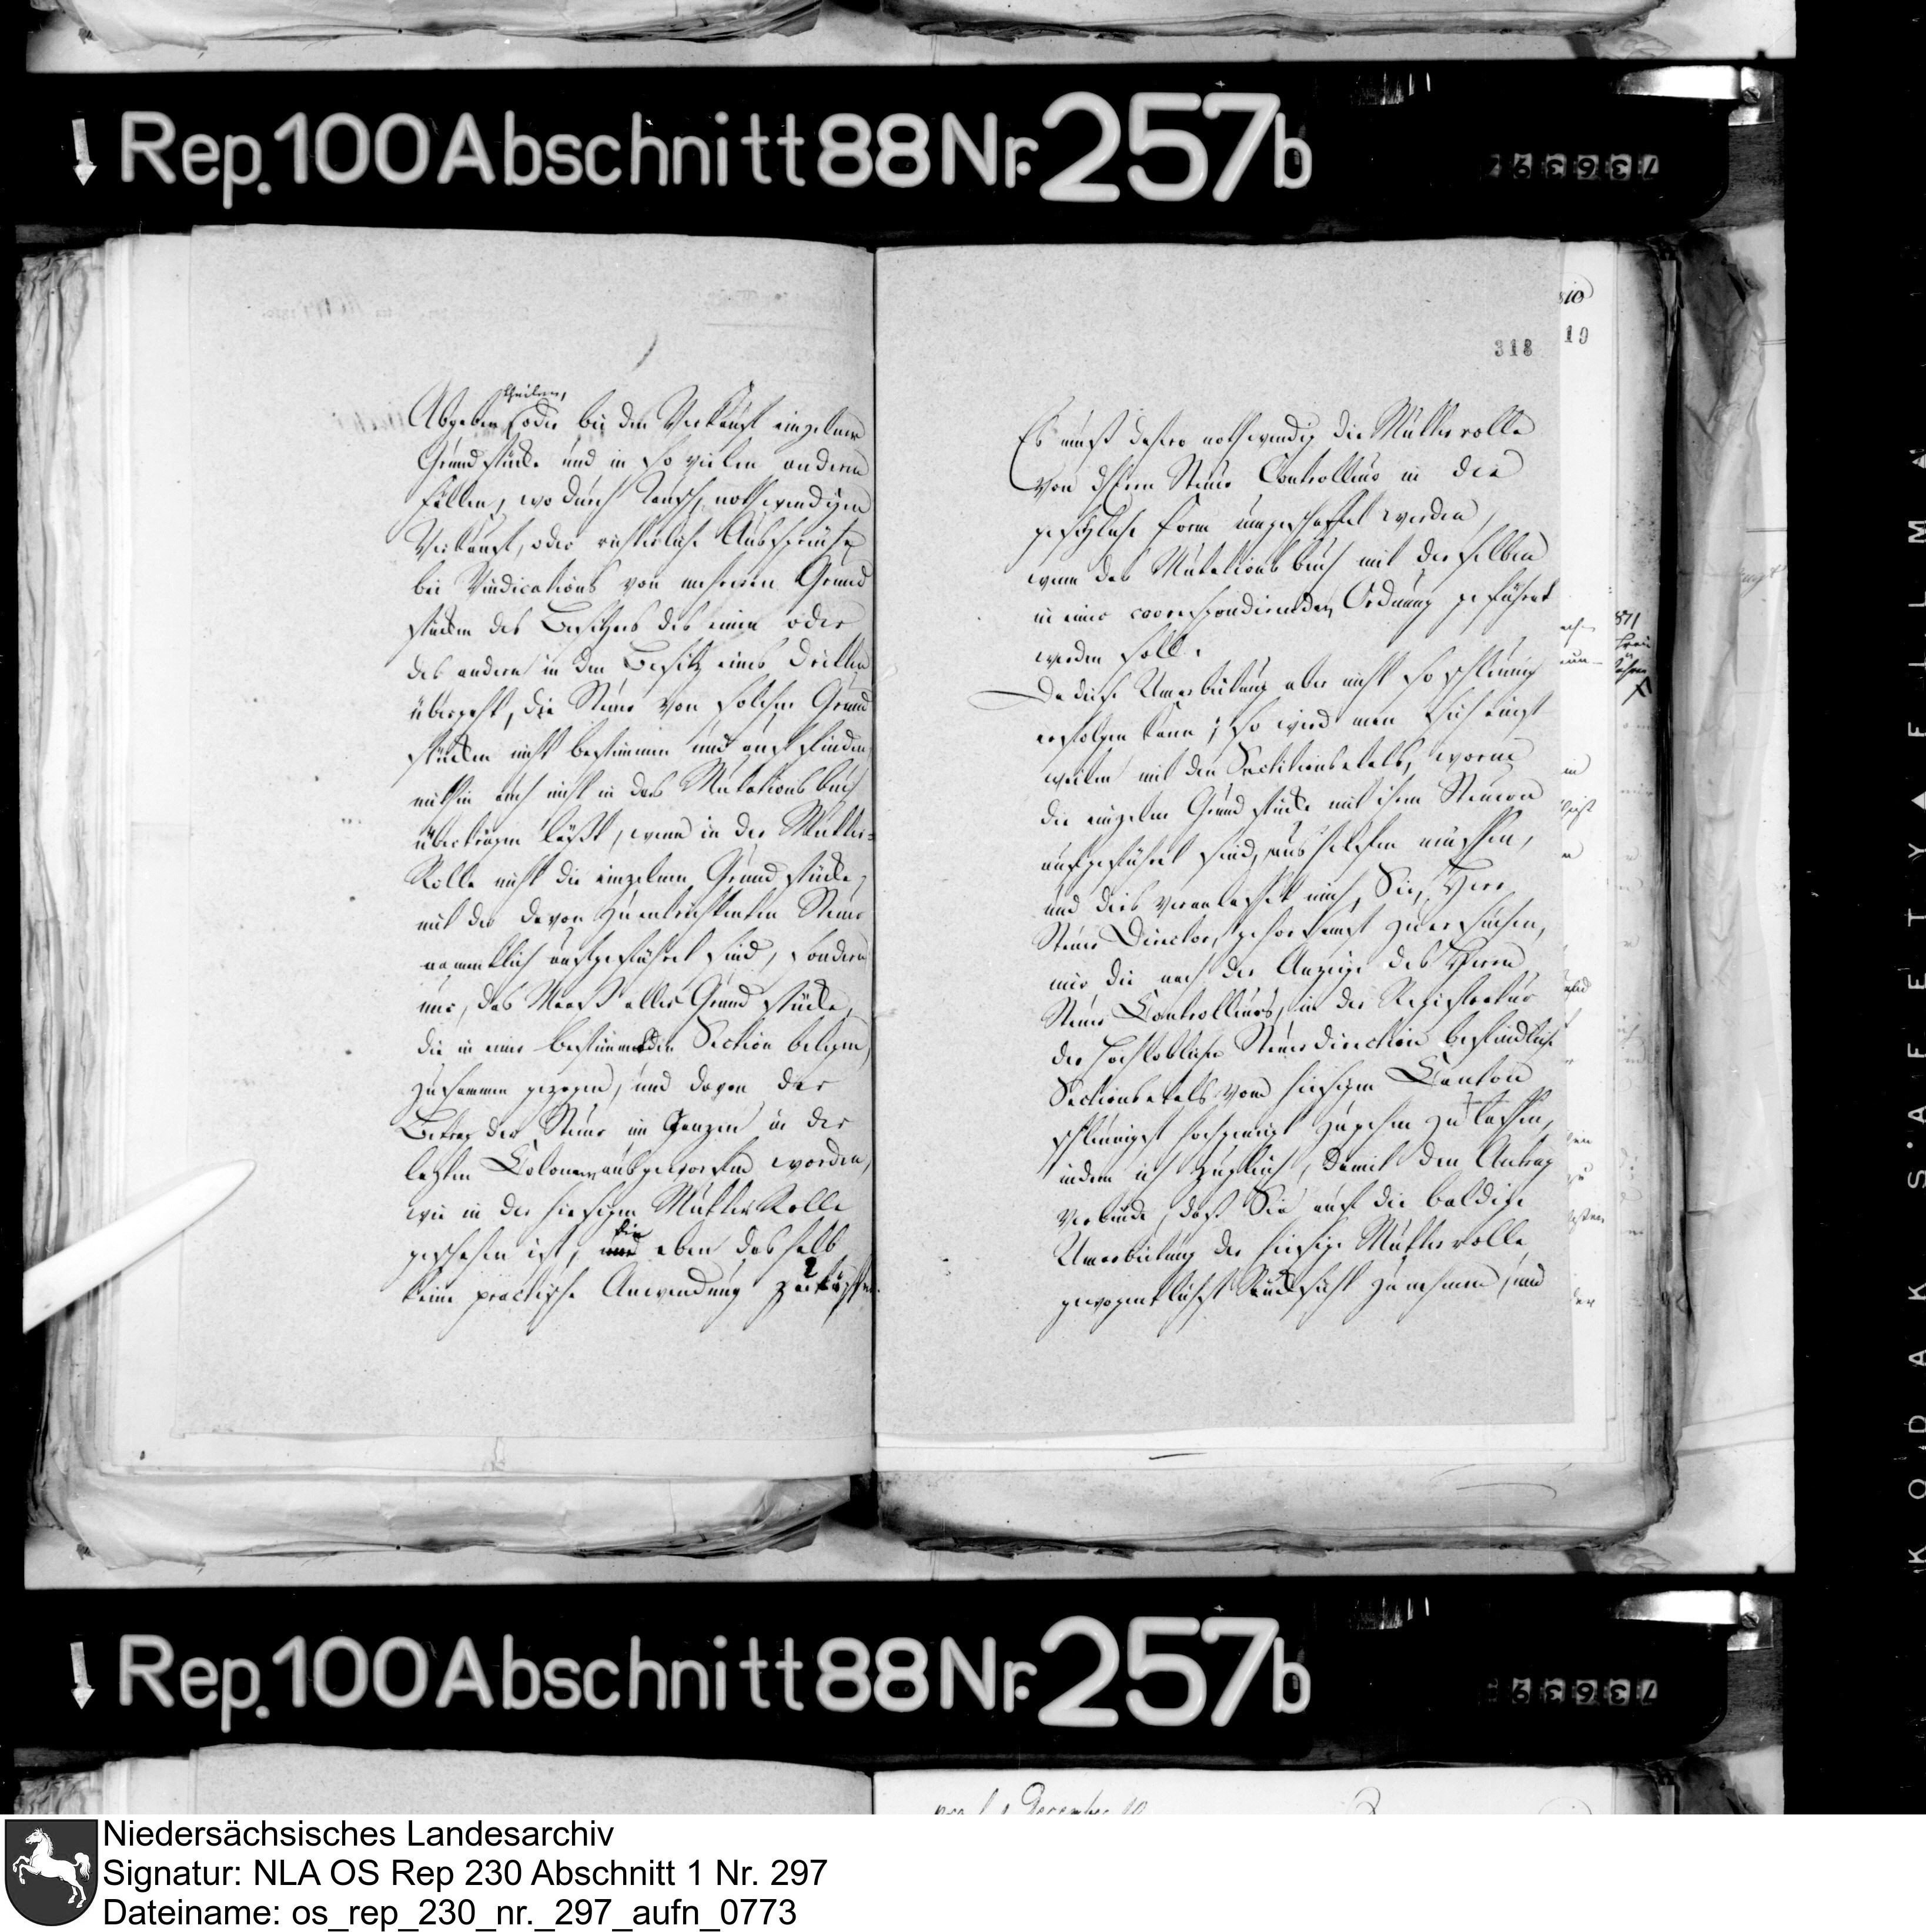 Rep. 100 Abschnitt 88 Nr. 257b
73639
theilen,
Abgaben oder bei den Verkauf einzelner
Grundstücke und in so vielen anderen
Fällen, wo durch Tausch, nothwendigen
Verkauf, oder richterliche Aussprüche
bei Vindications von mehreren Grund
stücken des Besitzers des einen oder
des andern in den Besitz eines Dritten
übergeht, die Steuer von solchen Grund
stücken nicht bestimmen und ausfinden,
mithin auch nicht in das Mutationsbuch
übertragen läßt, wenn in der Mutter-
Rolle nicht die einzelnen Grundstücke,
mit der davon zu entrichtenden Steuer
namentlich aufgeführt sind, sondern
nur, das Maaß aller Grundstücke,
die in einer bestimmten Section belegen,
zusammen gezogen, und davon der
Betrag der Steuer im Ganzen in der
letzten Colonne ausgeworfen worden,
wie in der hiesigen Mutter Rolle
geschehen ist, die eben deshalb
keine practische Anwendung
318
Es muß dahero nothwendig die Mutterrolle
von dem Herrn Steuer Controlleur in die
gesetzliche Form umgeschaffet werden,
wenn das Mutationsbuch mit derselben
in einer correspondirenden Ordnung geführt
werden soll.
Da diese Umarbeitung aber nicht so schleunig
erfolgen kann; so wird man sich einst
weilen mit den Sectionsetats, worin
die einzelnen Grundstücke mit ihren Steuern
aufgeführt sind, aushelfen müssen,
und dies veranlasset mich, Sie, Herr
Steuer Director, gehorsamst zu ersuchen,
mir die nach der Anzeige des Herrn
Steuer Controlleurs, in der Registratur
der hochlöblichen Steuerdirection befindliche
Sectionsetats vom hiesigen Canton
schleunigst hochgeneigt zugehen zu lassen,
indem ich zugleich, damit den Antrag
verbinde, daß Sie auf die baldige
Umarbeitung der hiesige Mutterrolle
gewogentlichst Rücksicht zu nehmen, und
19
Rep. 100 Abschnitt 88 Nr. 257b
73639
December
KODAK SAFETY FILM
Niedersächsisches Landesarchiv
Signatur: NLA OS Rep 230 Abschnitt 1 Nr. 297
Dateiname: os_rep_230_nr._297_aufn_0773